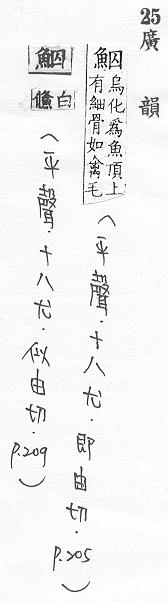 25 廣韻
鮂 烏化爲魚頂上有細骨如禽毛（平聲．十八尤．即由切．P.205）
鮂 白鯈（平聲．十八尤．似由切．P.209）